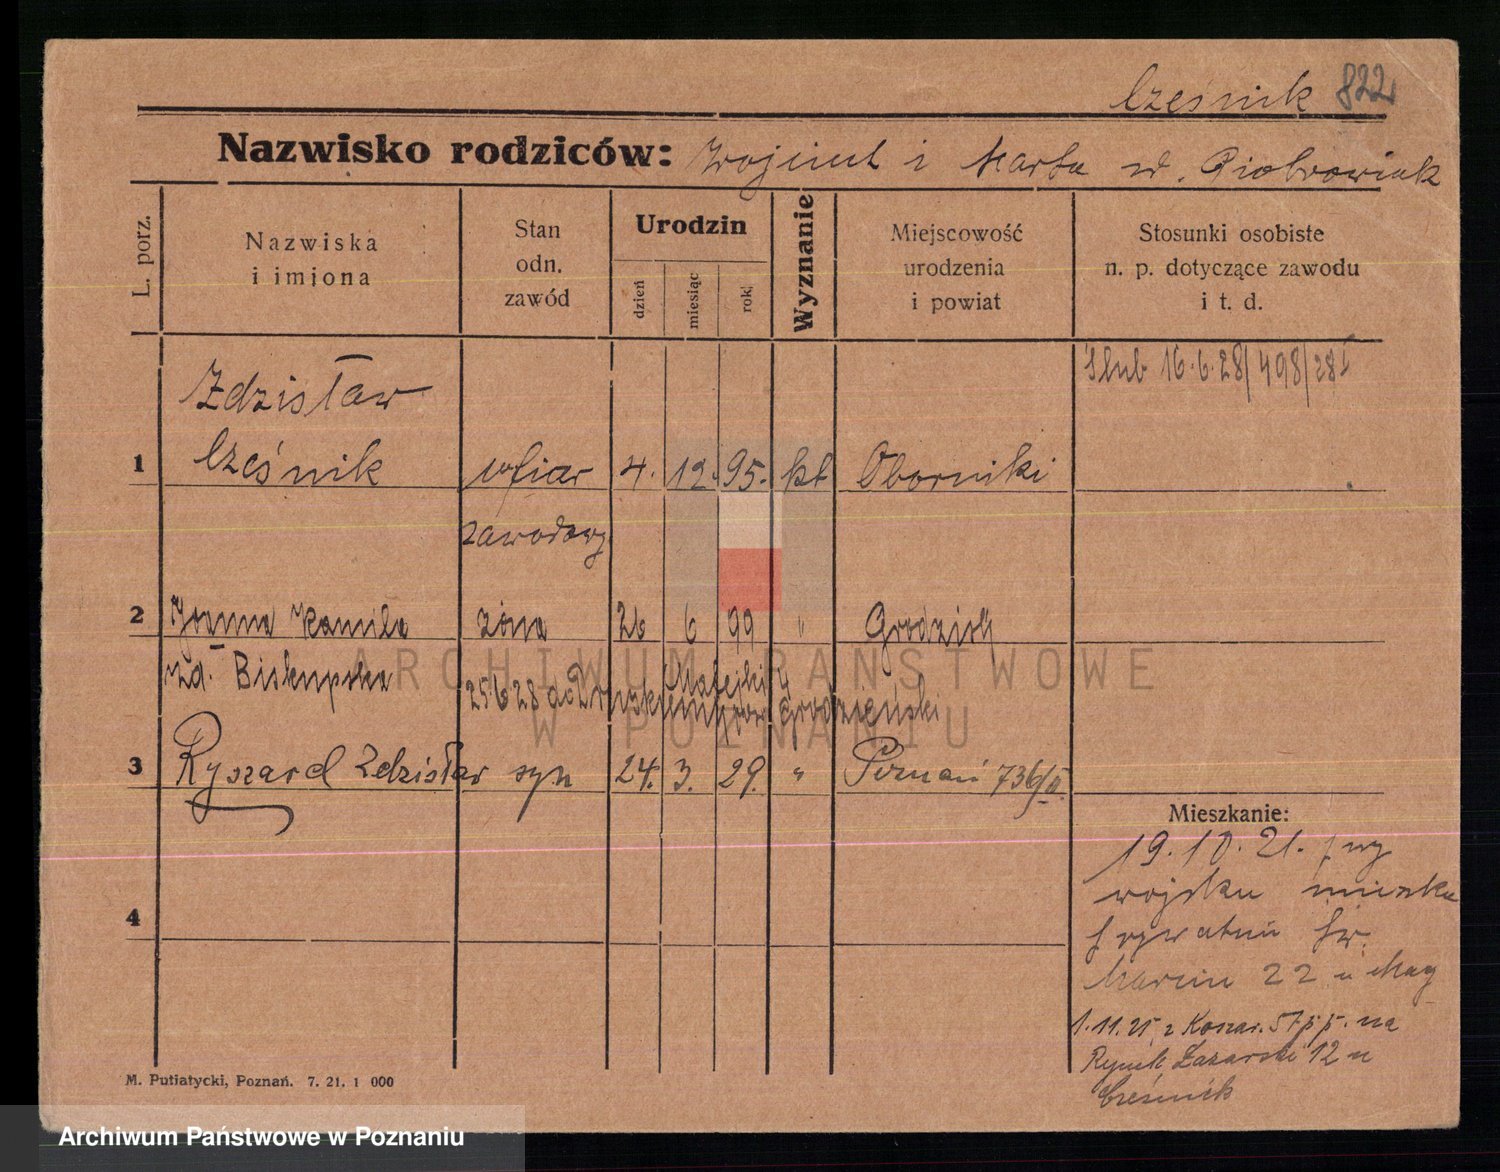 Cześnik 822
Nazwisko rodziców: Wojciech i Marta zd. Piotrowiak
L. porz.
Nazwiska
i imiona
Stan
odn.
zawód
Urodzin
dzień
miesiąc
rok
Wyznanie
Miejscowość
urodzenia
i powiat
Stosunki osobiste
n. p. dotyczące zawodu
i t. d.
Ślub 16.6.28/498/28
Zdzisław
1 Cześnik 4. 12. 95. kt Oborniki
zawodowy
2 Joanna Kamila żona 26 6 99 " Grodzisk
zd. Biskupska
25.6.28 Matejki
3 Ryszard Zdzisław syn 24. 3. 29. " Poznań 736/II.
4
Mieszkanie:
19.10.21. przy
wojsku mieszka
prywatnie Św.
Marcin 22 u May
1.11.25 z Koszar. 57 p.p. na
Rynek Łazarski 12 u
Cześnik
M. Putiatycki, Poznań. 7. 21. 1 000
ARCHIWUM PAŃSTWOWE
W POZNANIU
Archiwum Państwowe w Poznaniu